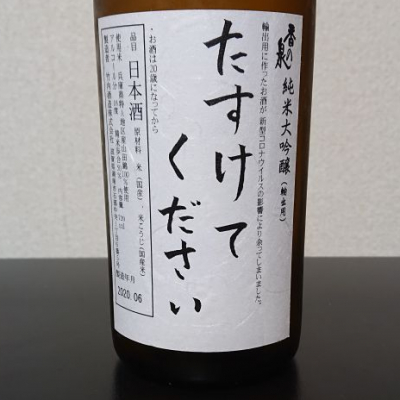 香の泉 純米大吟醸(輸出用)
輸出用に作ったお酒が新型コロナウイルスの影響により余ってしまいました。
たすけて
ください
・お酒は20歳になってから
品目 日本酒
原材料 米(国産)、米こうじ(国産米)
使用米 兵庫県特A地区産山田錦100%使用
製造年月
2020.06